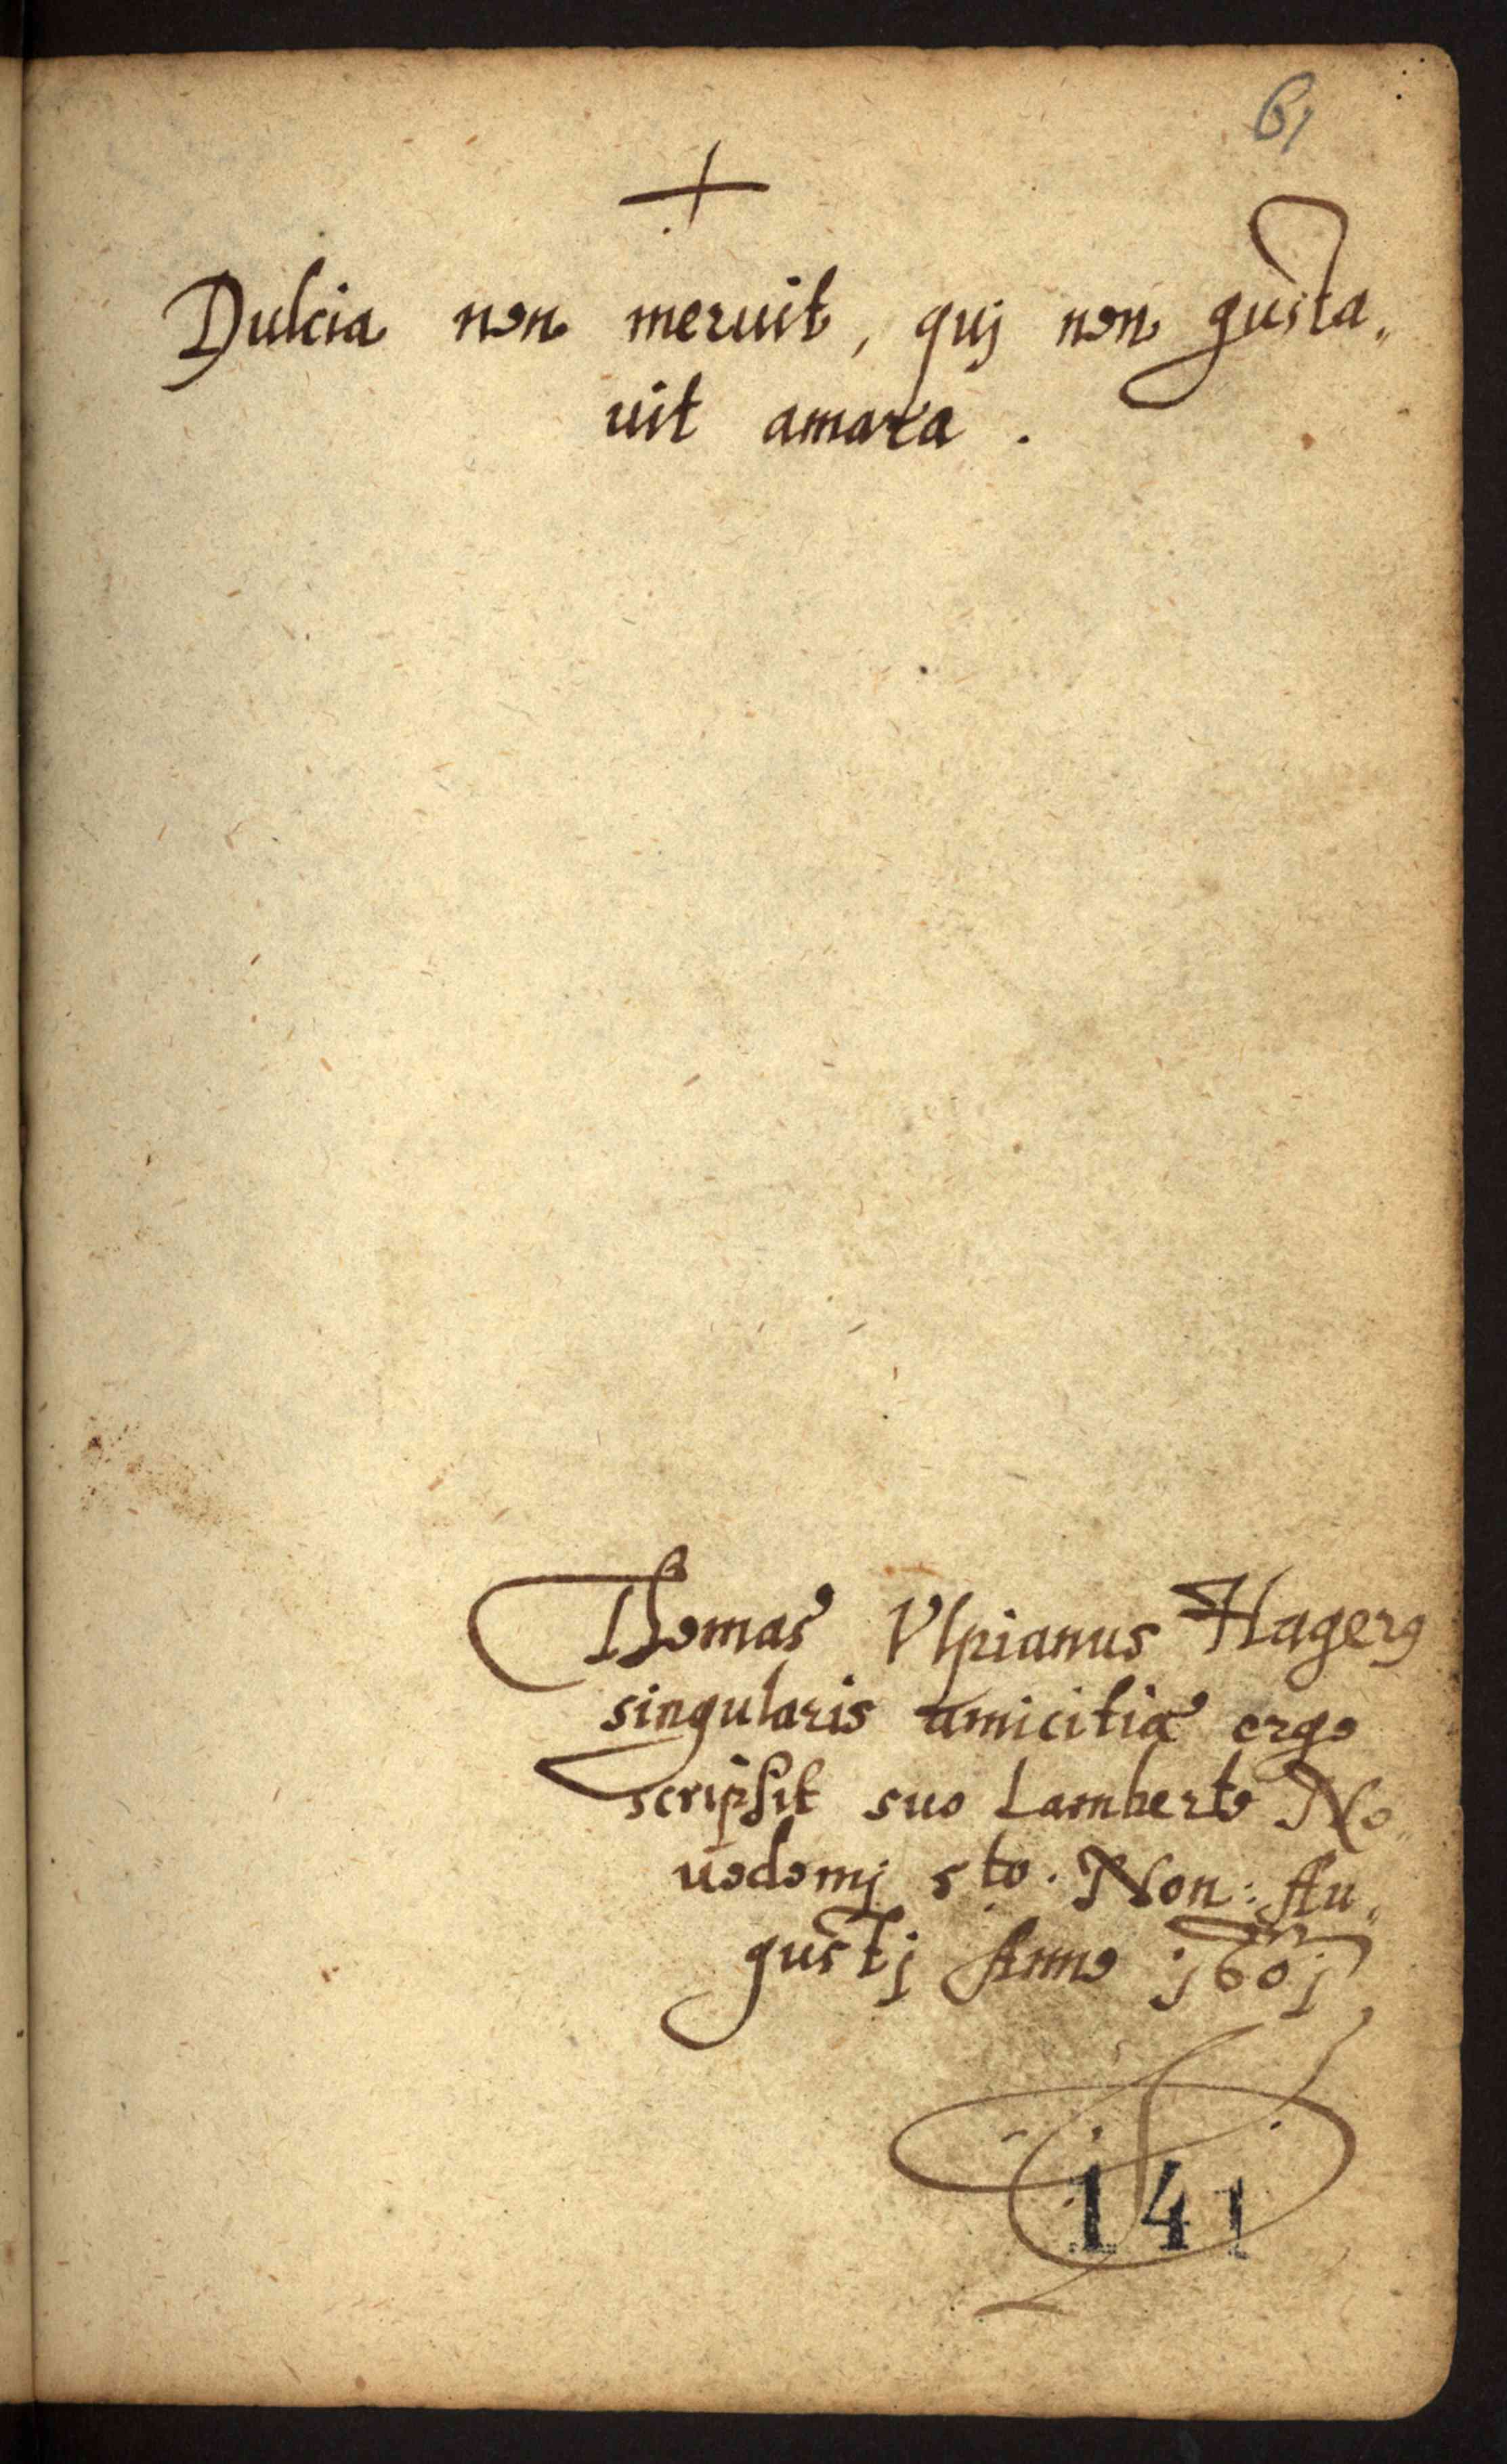 61
+
Dulcia non meruit, quj non gusta„
uit amara .
Thomas Vlpianus Hagerꝯ
singularis amicitiæ ergo
scripsit suo Lamberto No„
uodomj 5to. Non: Au„
gustj Anno 1601
141